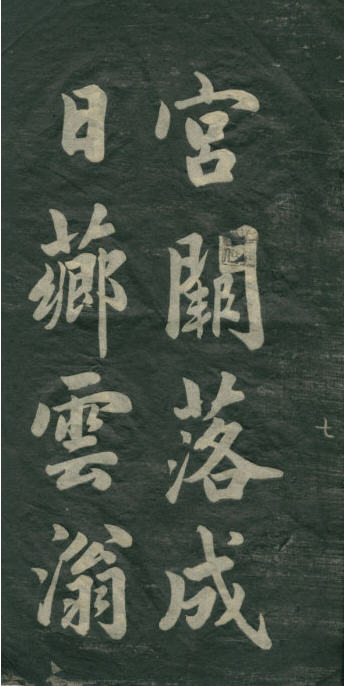 七
宮闕落成
日薌雲滃